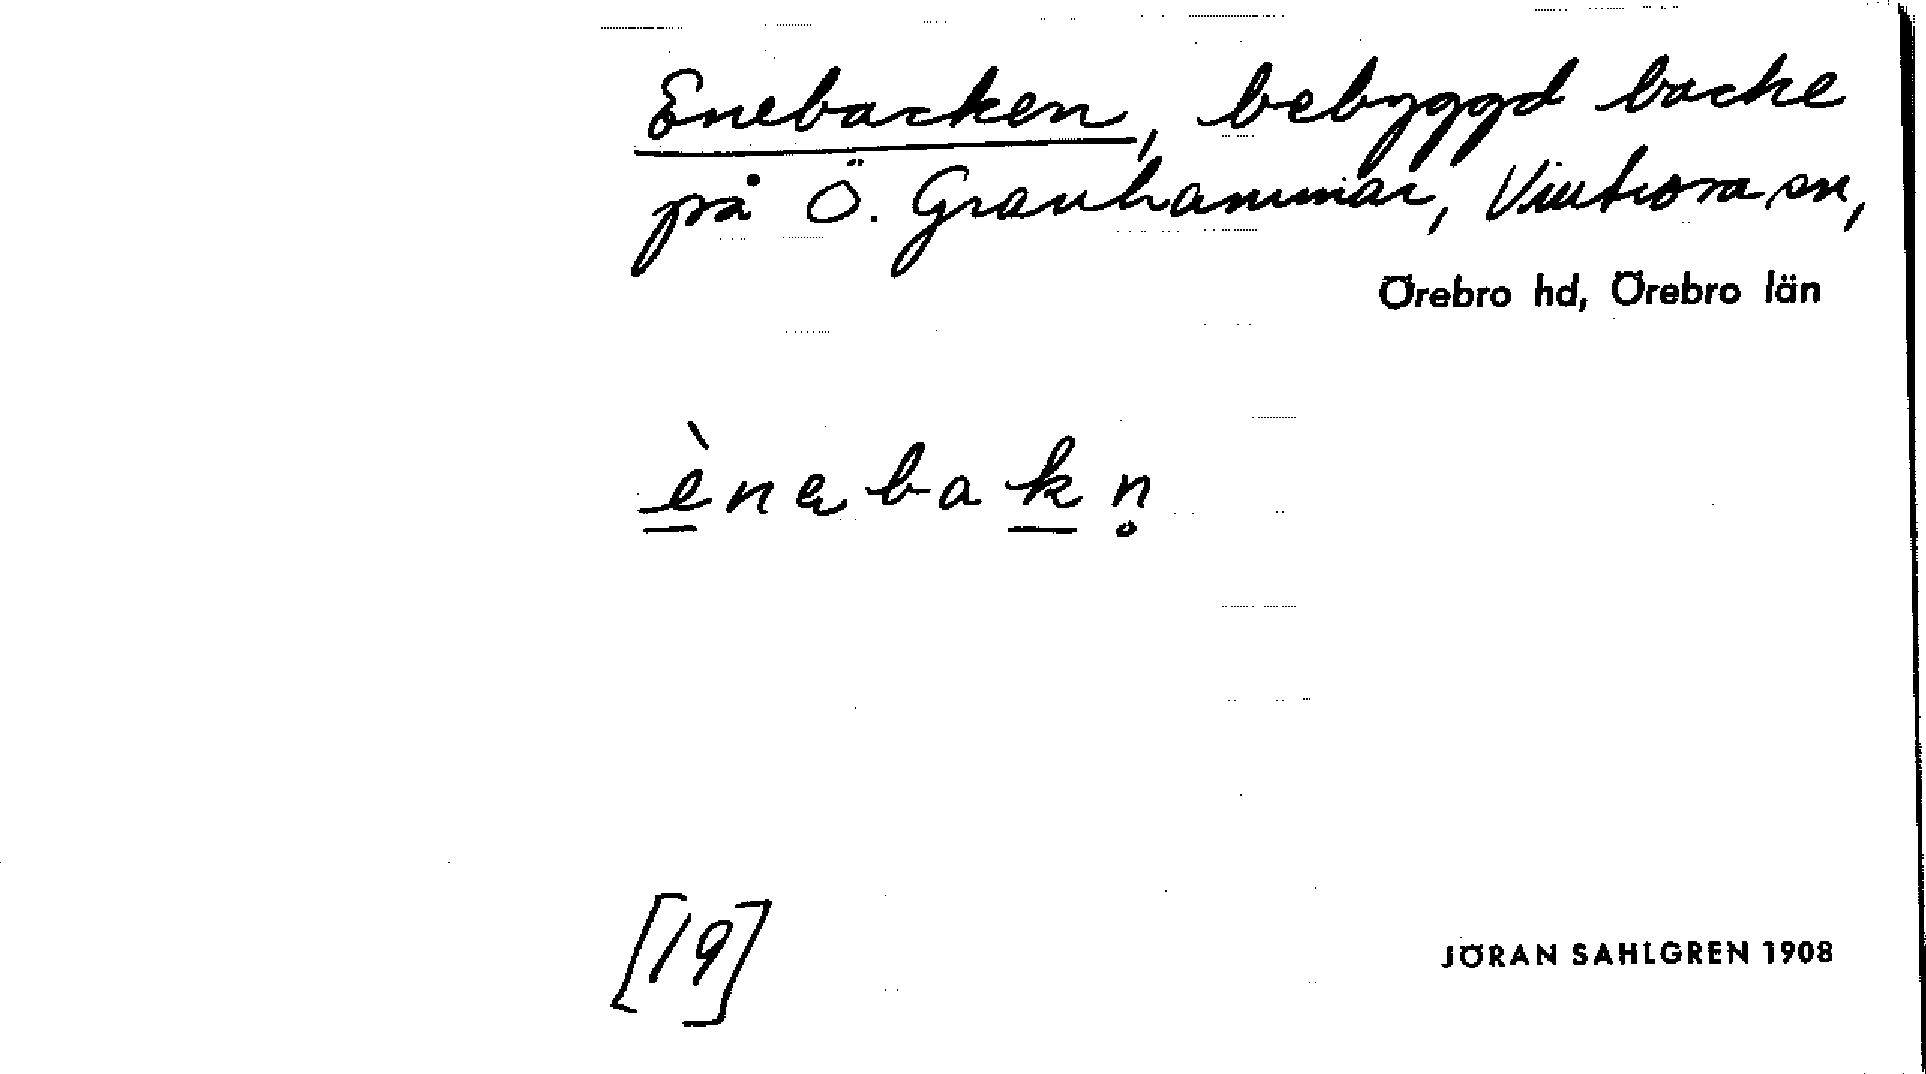 Enebacken, bebyggd backe
på Ö. Granhammar, Vintrosa sn,
Örebro hd, Örebro län
ènabakn̥
[19]
JÖRAN SAHLGREN 1908